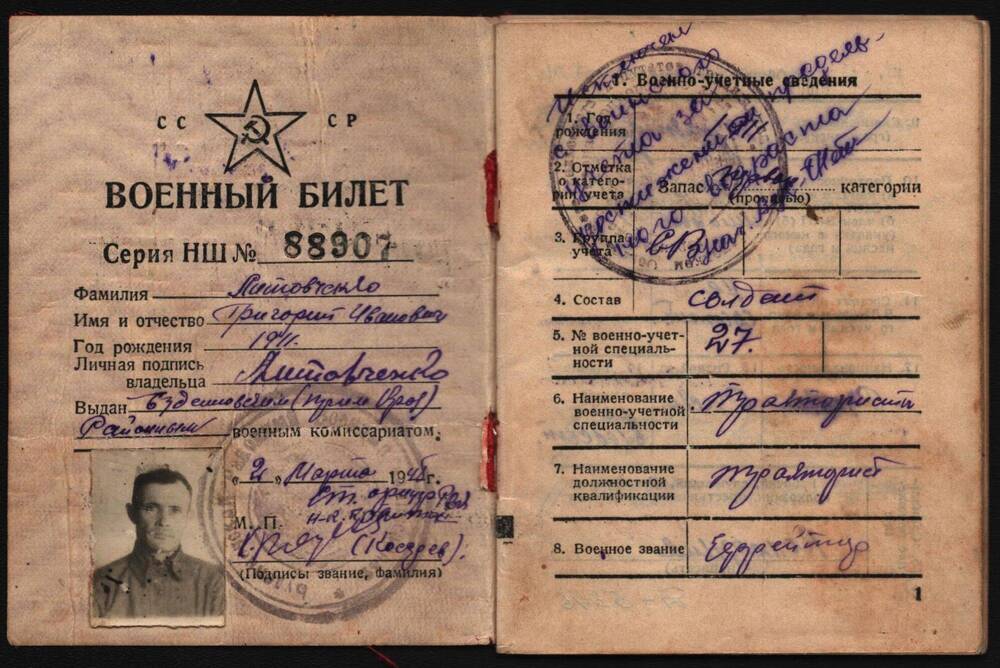 СС СР
ВОЕННЫЙ БИЛЕТ
Серия НШ № 88907
Фамилия Литовченко
Имя и отчество Григорий Иванович
Год рождения 1911.
Личная подпись
владельца Литовченко
Выдан
Районным военным комиссариатом.
„2“ Марта 1948г.
М. П.
(Косарев).
(Подписы звание, фамилия)
Исключен
с воинского
учета за
достижением предель-
ного возраста
1. Военно-учетные сведения
1. Год
рождения 1911
2. Отметка
о катего-
рии учета Запас категории
(прописью)
3. Группа
учета
4. Состав солдат
5. № военно-учет-
ной специаль-
ности 27.
6. Наименование
военно-учетной
специальности Трактористы
7. Наименование
должностной
квалификации тракторист
8. Военное звание Ефрейтор
1